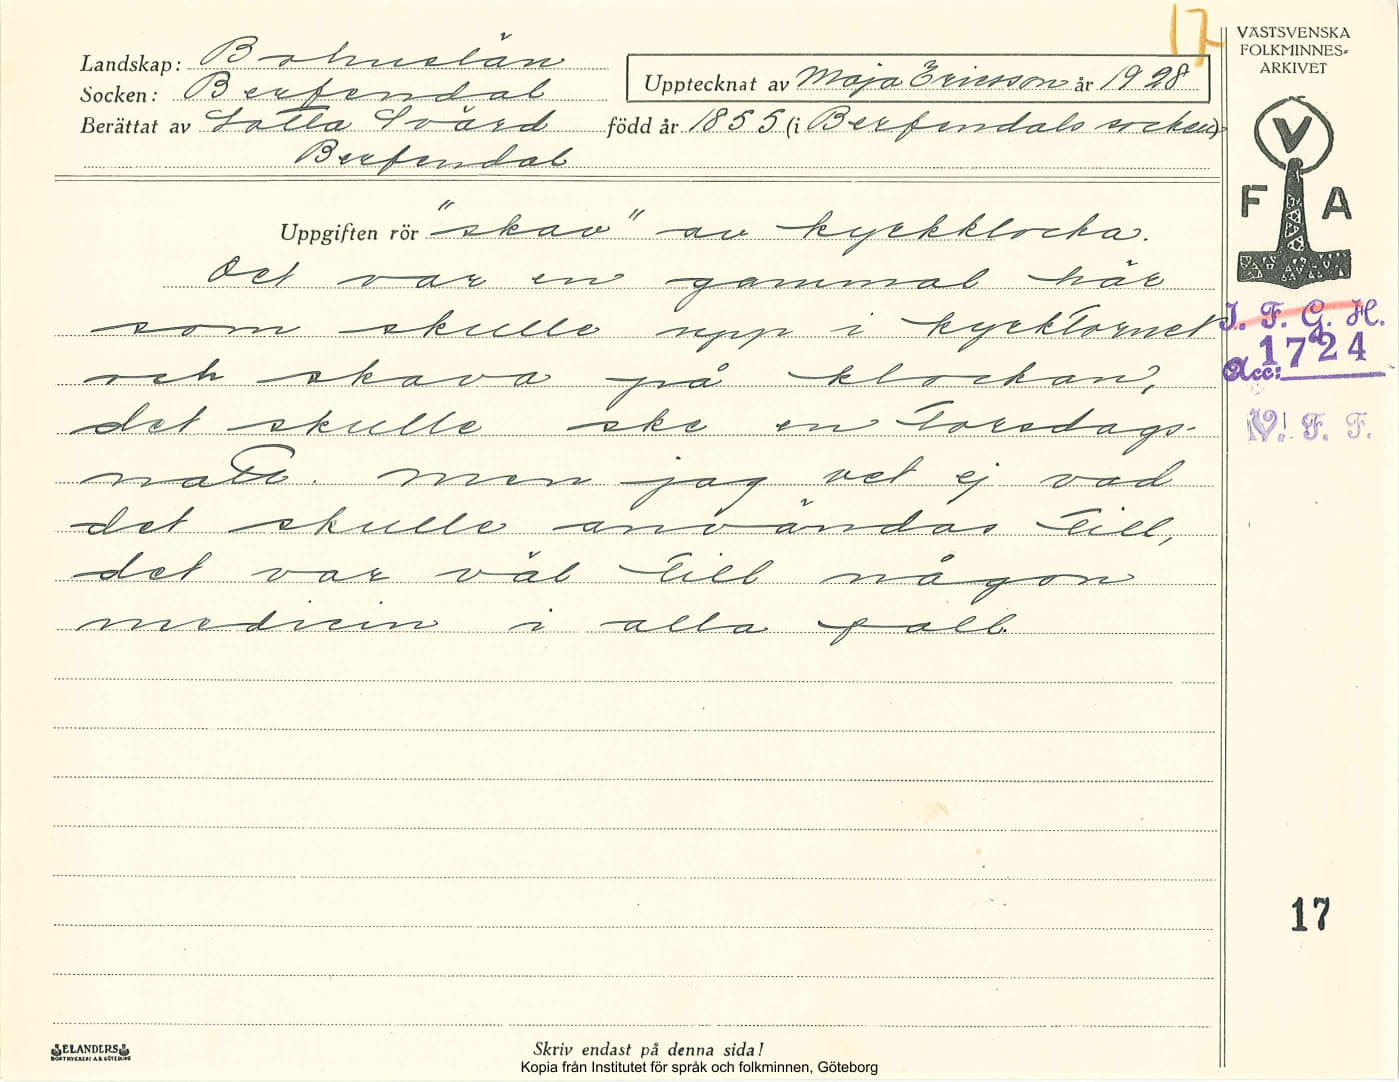 17
Landskap: Bohuslän
Socken: Berfendal
Upptecknat av Maja Ericsson år 1928
Berättat av Lotta Svärd född år 1855 (i Berfendals socken)
Berfendal
VÄSTSVENSKA
FOLKMINNES=
ARKIVET
V
F A
Uppgiften rör "skav" av kyrkklocka.
Det var en gammal här
som skulle upp i kyrktornet
och skava på klockan,
det skulle ske en torsdags-
natt. Men jag vet ej vad
det skulle användas till,
det var väl till någon
medicin i alla fall.
I. F. G. H.
Acc: 1724
V. F. F.
17
ELANDERS
BOKTRYCKERI A.B. GÖTEBORG
Skriv endast på denna sida!
Kopia från Institutet för språk och folkminnen, Göteborg